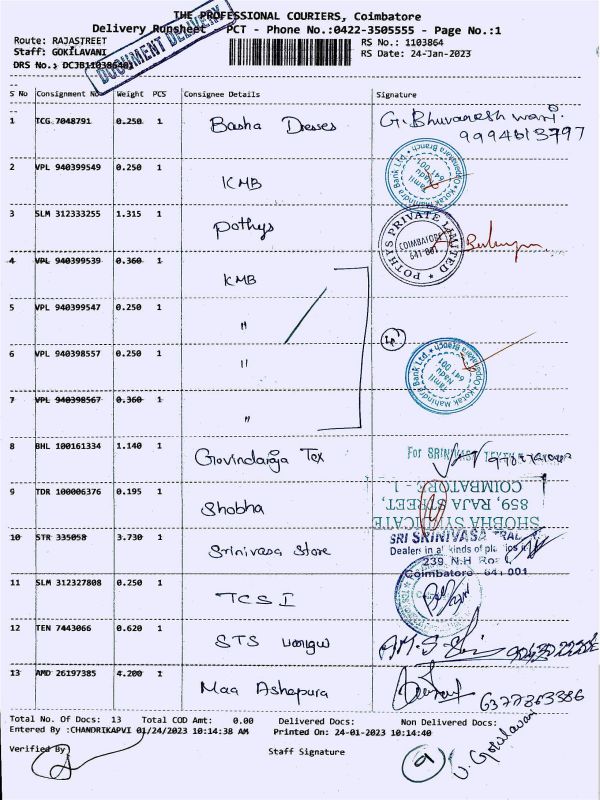 THE PROFESSIONAL COURIERS, Coimbatore
Delivery Runsheet - PCT - Phone No.:0422-3505555 - Page No.:1
Route: RAJASTREET RS No.: 1103864
Staff: GOKILAVANI RS Date: 24-Jan-2023
DRS No.: DCJB110386401
DOCUMENT DELIVERY
S No Consignment No Weight PCS Consignee Details Signature
1 TCG 7048791 0.250 1 Basha Dresses G. Bhuvaneshwari.
9994613797
2 VPL 940399549 0.250 1 KMB
Kotak Mahindra Bank Ltd.
Tamil
Nadu
641 001
3 SLM 312333255 1.315 1 Pothys
POTHYS PRIVATE LIMITED
COIMBATORE
641 001
4 VPL 940399539 0.360 1 KMB
5 VPL 940399547 0.250 1 "
6 VPL 940398557 0.250 1 "
Kotak Mahindra Bank Ltd.
Tamil
Nadu
641 001
7 VPL 940398567 0.360 1 "
8 BHL 100161334 1.140 1 Govindaraja Tex
For SRINIVASA
9 TDR 100006376 0.195 1 Shobha
SHOBHA SYNDICATE
859, RAJA STREET,
COIMBATORE - 1.
10 STR 335058 3.730 1 Srinivasa Store
SRI SRINIVASA
Dealers in all kinds of
239, N.H Ro
Coimbatore 641 001
11 SLM 312327808 0.250 1 TCS I
12 TEN 7443066 0.620 1 STS
13 AMD 26197385 4.200 1 Maa Ashapura
6377263386
Total No. Of Docs: 13 Total COD Amt: 0.00 Delivered Docs: Non Delivered Docs:
Entered By :CHANDRIKAPVI 01/24/2023 10:14:38 AM Printed On: 24-01-2023 10:14:40
Verified By Staff Signature
V. Gokilavani